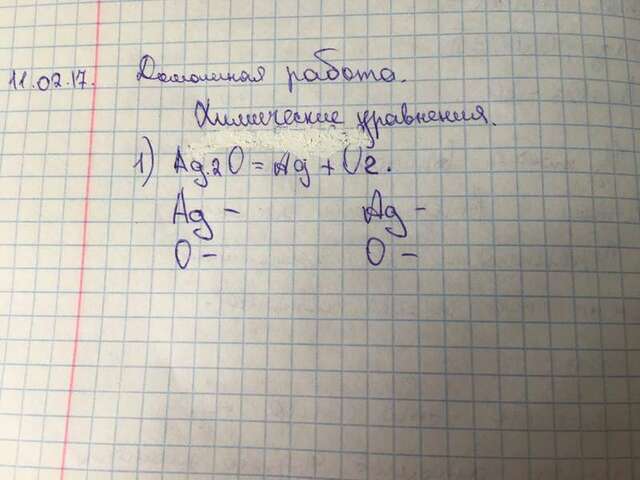 11.02.17.
Домашняя работа.
Химические уравнения.
1) Ag2O = Ag + O2.
Ag - Ag -
O - O -